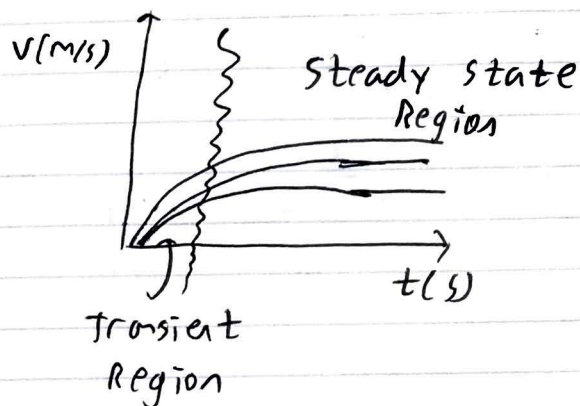 V(m/s)
Steady state
Region
t(s)
Transient
Region